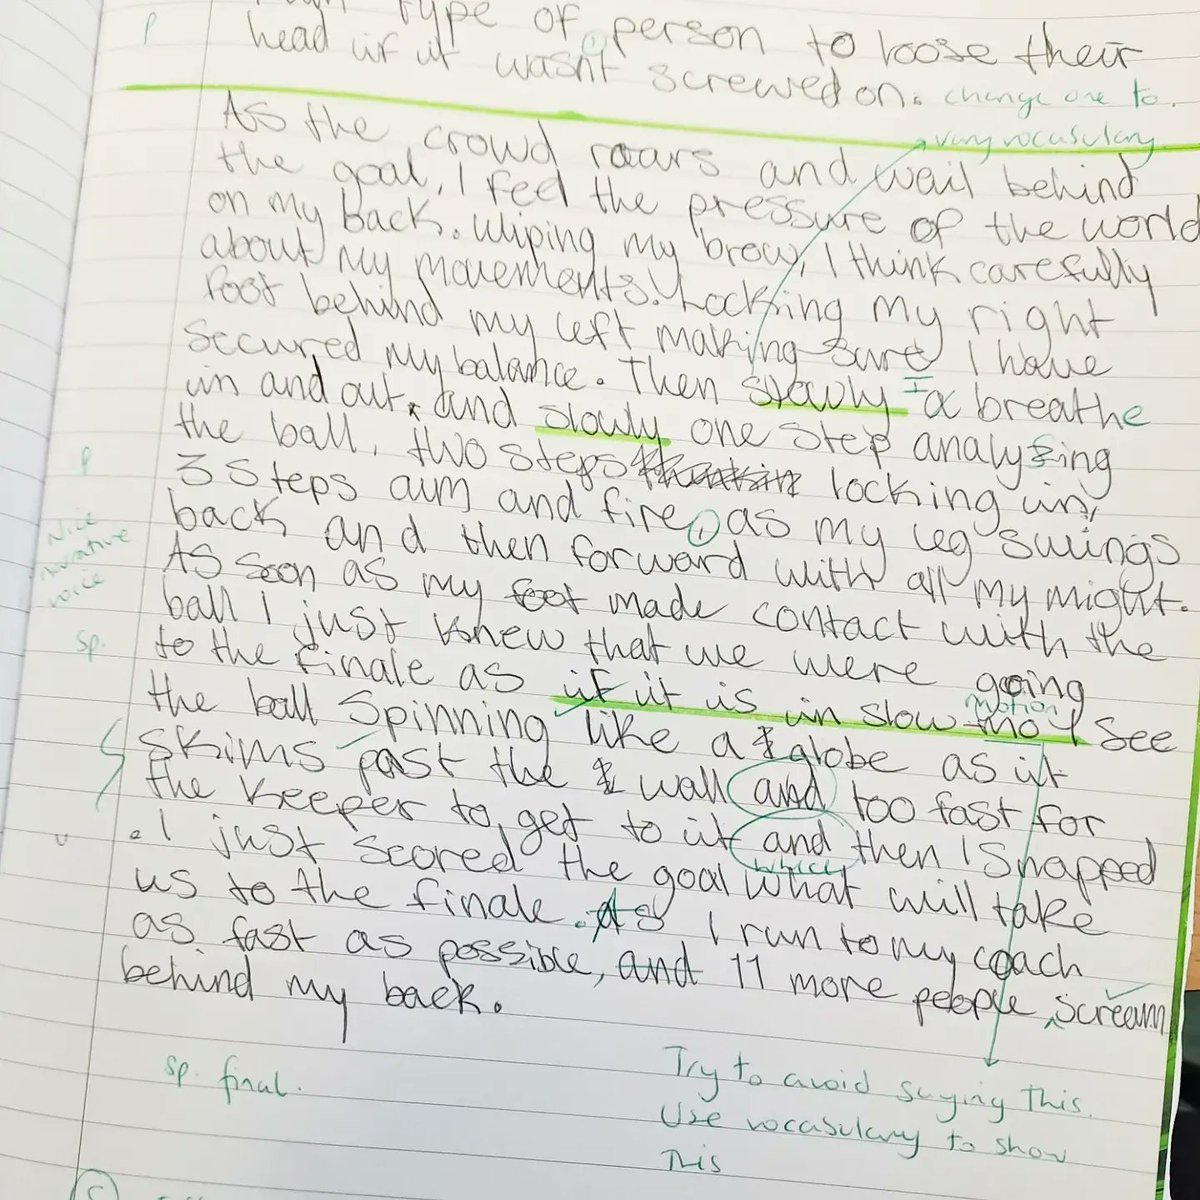 type of person to loose their
p head if it wasn't screwed on. change one to
vary vocabulary
As the crowd roars and wail behind
the goal, I feel the pressure of the world
on my back. Wiping my brow, I think carefully
about my movements. Locking my right
foot behind my left making sure I have
secured my balance. Then slowly I breathe
in and out, and slowly one step analysing
p the ball, two steps locking in,
3 steps aim and fire, as my leg swings
Nice narrative voice
back and then forward with all my might.
As soon as my foot made contact with the
ball I just knew that we were going
sp. to the finale as if it is in slow mo I see
motion
the ball Spinning like a globe as it
skims past the wall and too fast for
the keeper to get to it and then I snapped
. I just scored the goal what will take
which
us to the finale. As I run to my coach
as fast as possible, and 11 more people scream
behind my back.
sp. final.
Try to avoid saying this.
Use vocabulary to show
this